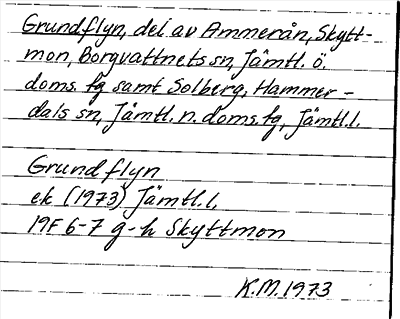 Grundflyn, del av Ammerån, Skytt-
mon, Borgvattnets sn, Jämtl. ö.
doms. fg samt Solberg, Hammer-
dals sn, Jämtl. n. doms. fg, Jämtl. l.
Grundflyn
ek (1973) Jämtl. l.
19F 6-7 g-h Skyttmon
K.M. 1973